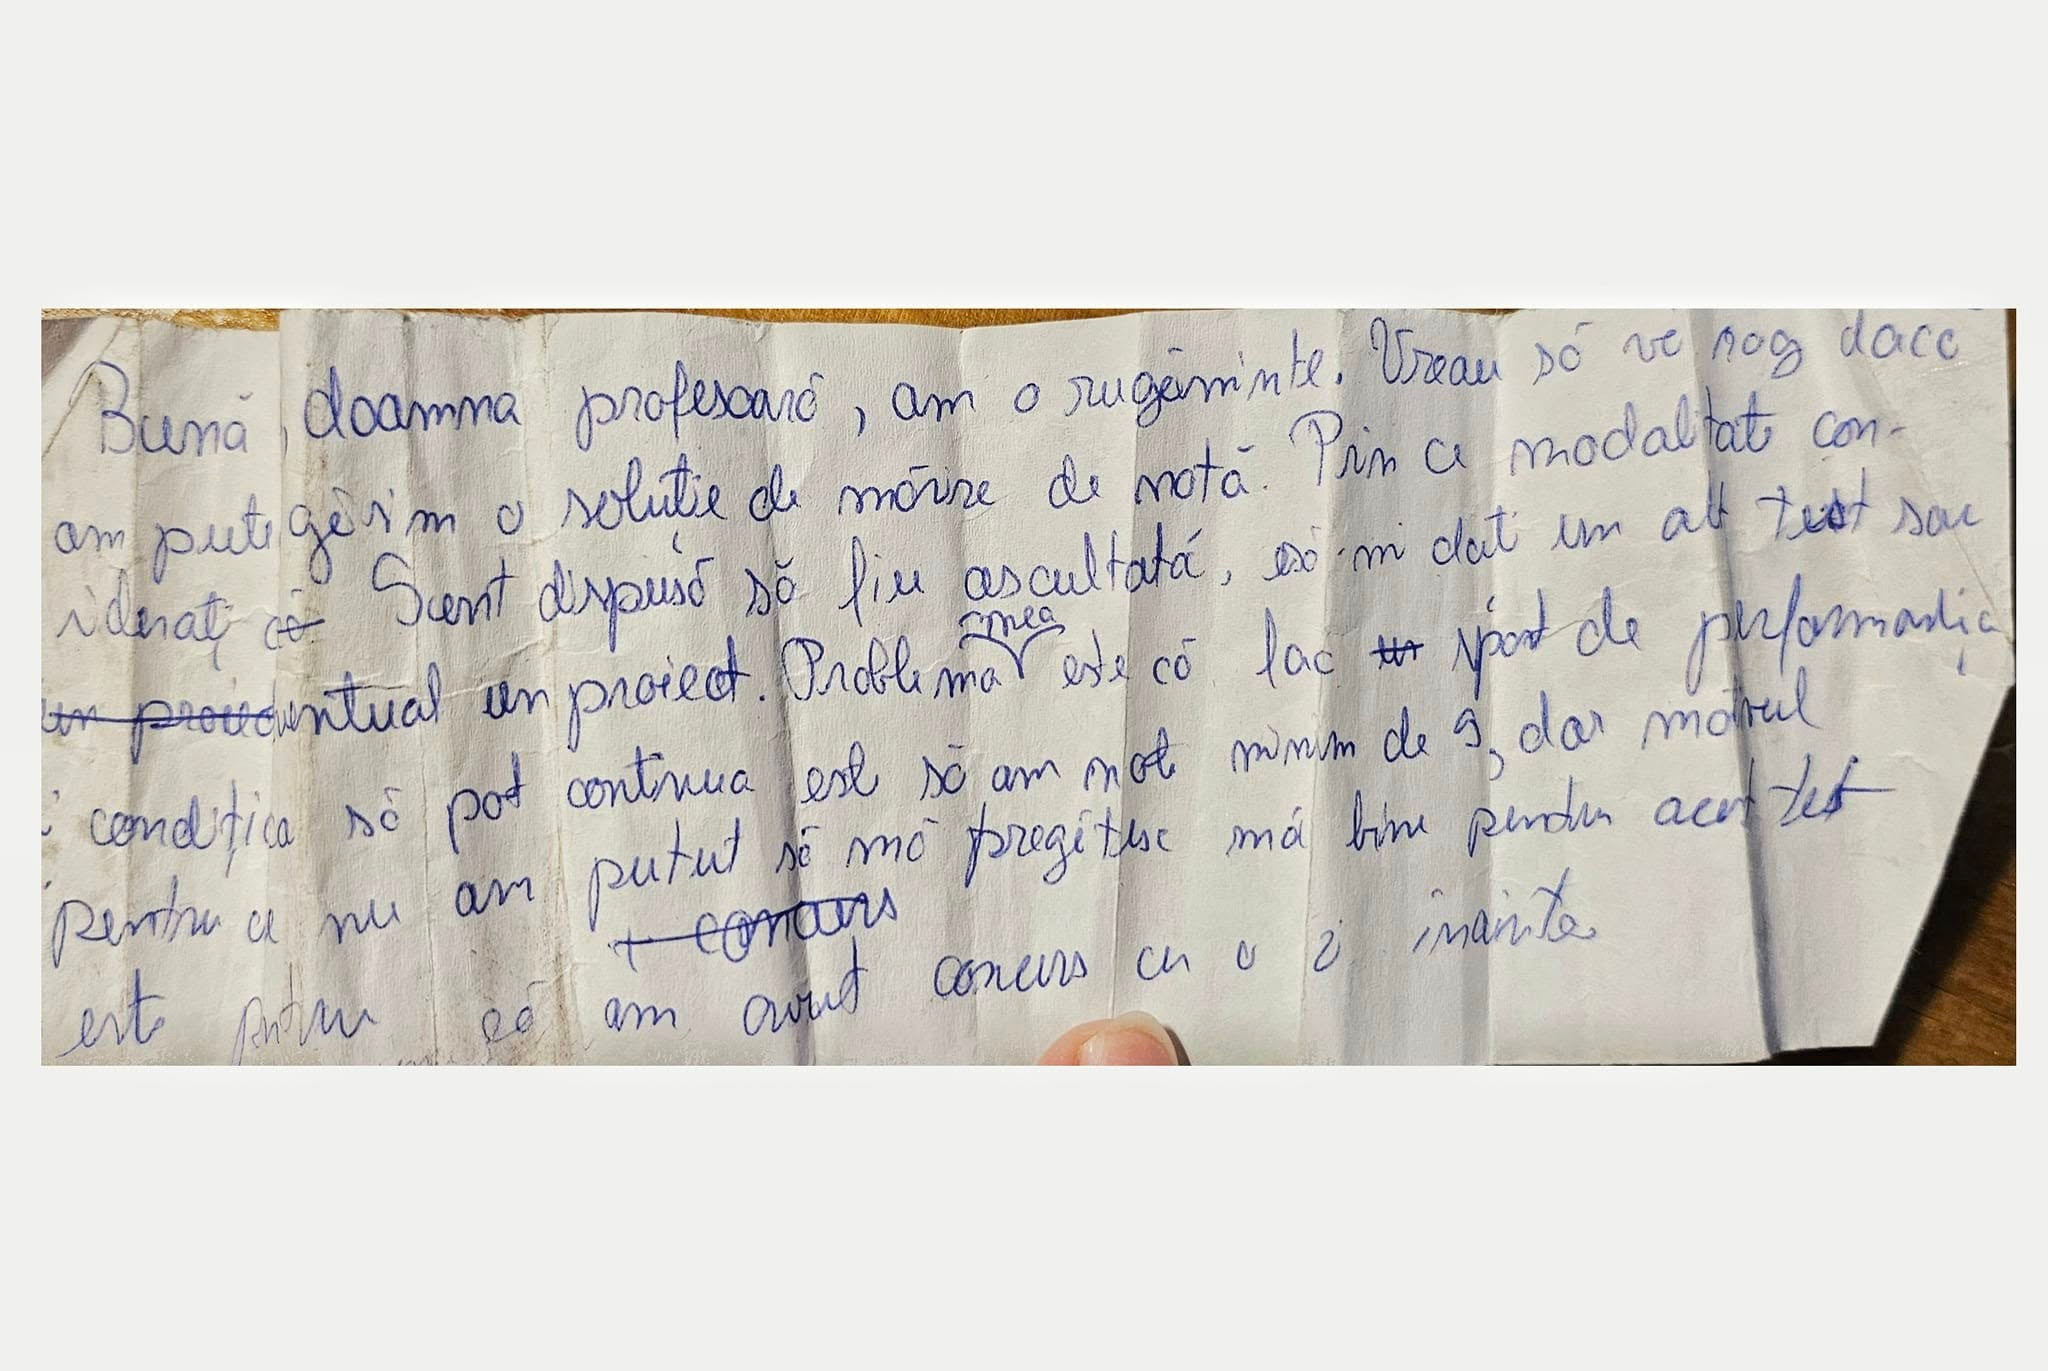 Bună, doamna profesoară, am o rugăminte. Vreau să vă rog dacă
am pute găsim o soluție de mărire de notă. Prin ce modalitate con-
siderați că Sunt dispusă să fiu ascultată, să-mi dați un alt test sau
un proiect eventual un proiect. Problema mea este că fac un sport de performanță
și condiția să pot continua este să am note minim de 9, dar motivul
pentru ce nu am putut să mă pregătesc mă bine pentru acest test
+ concurs
este pentru că am avut concurs cu o zi înainte